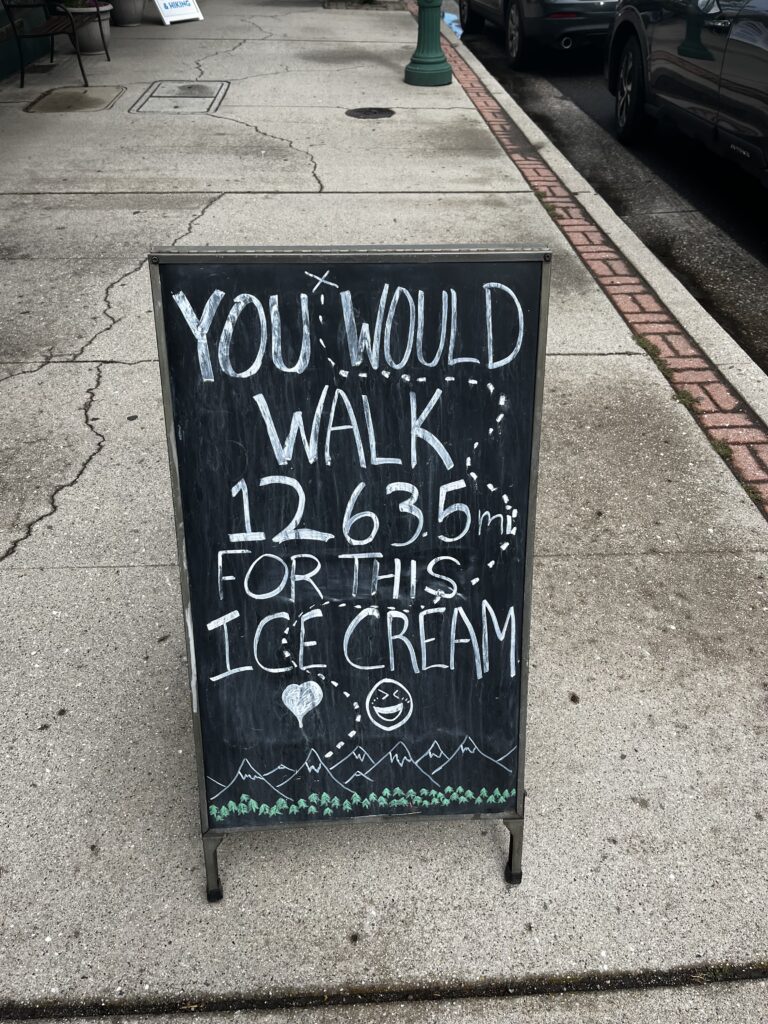 & HIKING
YOU WOULD
WALK
1263.5 mi
FOR THIS
ICE CREAM